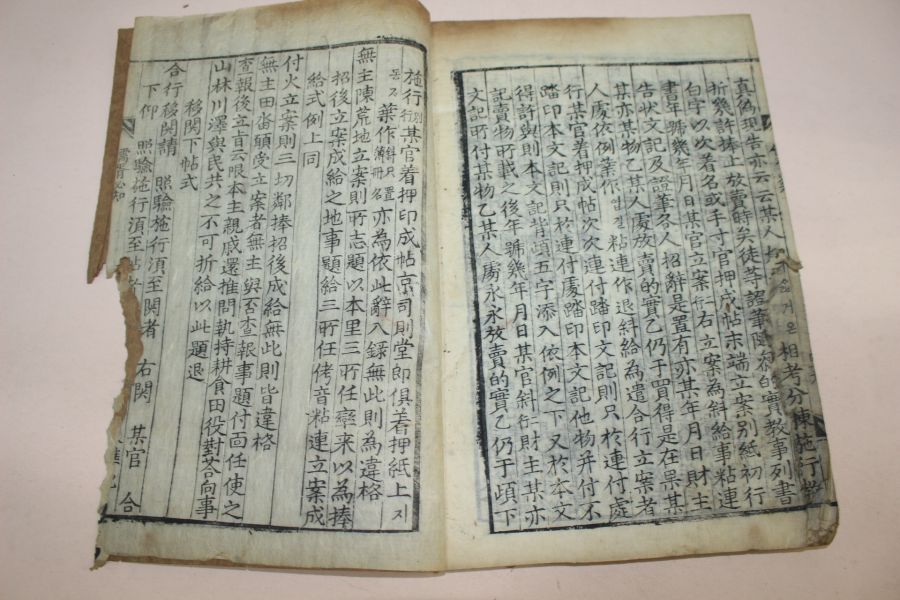 真偽現告亦云云某人
折幾許捧上放賣時矣徒等證筆隨參的實教事列書
白字以次著名或手寸官押成帖末端立案別紙初行
書年號幾年月日某官立案右立案為斜給事粘連
告狀文記及證筆各人招辭是置有亦某年月日財主
某亦某物乙某人處放賣的實乙仍于買得是在果某
人處依例葉作粘連作退斜給為遣合行立案者
行某官着押成帖次次連付踏印文記則只於連付處
踏印本文記則只於連付處踏印本文記他物并付不
得許與則本文記背頉五字添入依例之下又於本文
記賣物所載之後年號幾年月日某官斜行財主某亦
文記所付某物乙某人處永永放賣的實乙仍于頉下
施行行別某官着押印成帖京司則堂郎俱着押紙上지
葉作斜只置簿冊名亦為依此辭入錄無此則為違格
無主陳荒地立案則所志題以本里三所任率来以為捧
招後立案成給之地事題給三所任侤音粘連立案成
給式例上同
付火立案則三切鄰捧招後成給無此則皆違格
無主田畓願受立案者無主與否查報事題付面任使之
查報後立旨云眼本主親戚還推間執持耕食田役對荅向事
山林川澤與民共之不可折給以此題退
移関下帖式
合行移関請 照驗施行須至関者 右関 某官
下仰 照驗施行須至帖者 合